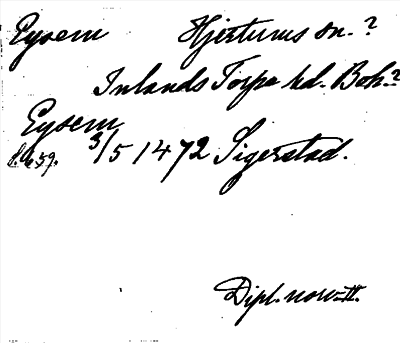 Eysem Hjertums sn.?
Inlands Torpe hd. Boh.?
Eysem
s. 59. 3/5 1472 Sigerstad.
Dipl. norv. II.